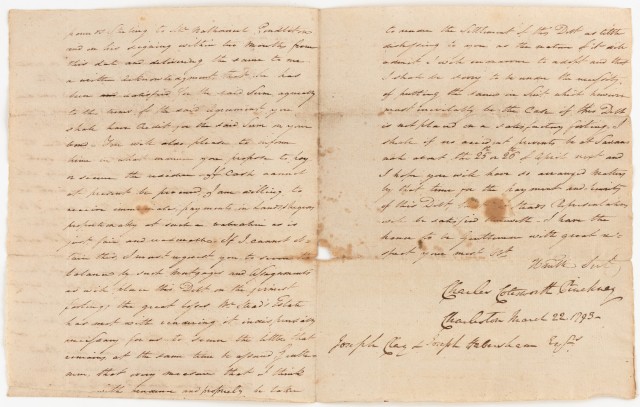 pounds Sterling to Mr Nathaniel Pendleton
and on his signing within two Months from
this date and delivering the same to me
a written acknowledgment that he has
been satisfied for the said Sum agreeably
to the tenor of the said Agreement you
shall have Credit for the said Sum in your
bond. You will also please to inform
him in what manner you propose to pay
or secure the residue. If Cash cannot
at present be procured, I am willing to
receive immediate payments in Lands & Negroes
proportionably at such a valuation as is
just fair and reasonable. If I cannot ob-
tain this, I must request you to secure the
balance by such Mortgages and Assignments
as will place this Debt on the firmest
footing; the great losses Mr Mead's Estate
has met with rendering it indispensably
necessary for us to secure the little that
remains, at the same time be assured Gentle-
men that every measure that I think
with and propriety be taken
to render the Settlement of this Debt as little
distressing to you as the nature of it will
admit I will endeavour to adopt and that
I shall be sorry to be under the necessity
of putting the same in Suit which however
must inevitably be the Case if this Debt
is not placed on a satisfactory footing. I
shall if no accident prevents be at Savan-
nah about the 25th or 26th of April next and
I hope you will have so arranged matters
by that time for the payment and security
of this Debt that Meads Representatives
will be satisfied therewith. I have the
honor to be Gentlemen with great re-
spect your most Obt
Humble Servt
Charles Cotesworth Pinckney
Charleston March 22. 1793
Joseph Clay & Joseph Habersham Esqrs